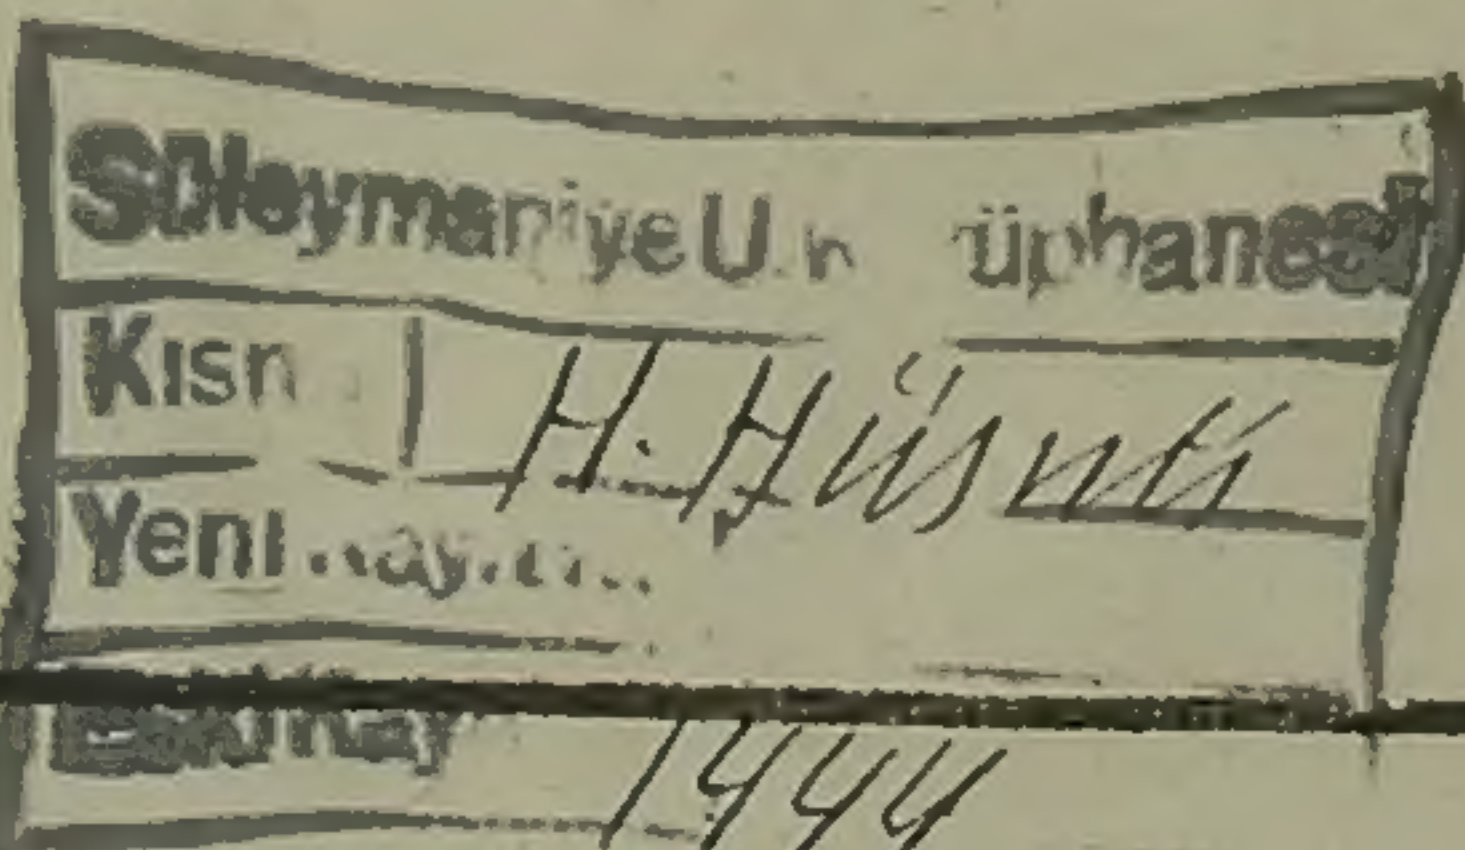 Süleymaniye U. Kütüphanesi
Kısmı H. Hüsnü
Yeni Kayıt
Eski Kay 1444